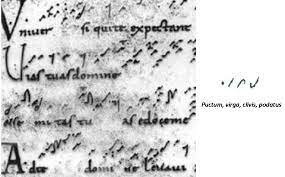 Vniuer si qui te expectant
Uias tuas domine
mi tas tu as edoceme
Adte domi ne leuaui
Puctum, virga, clivis, podatus